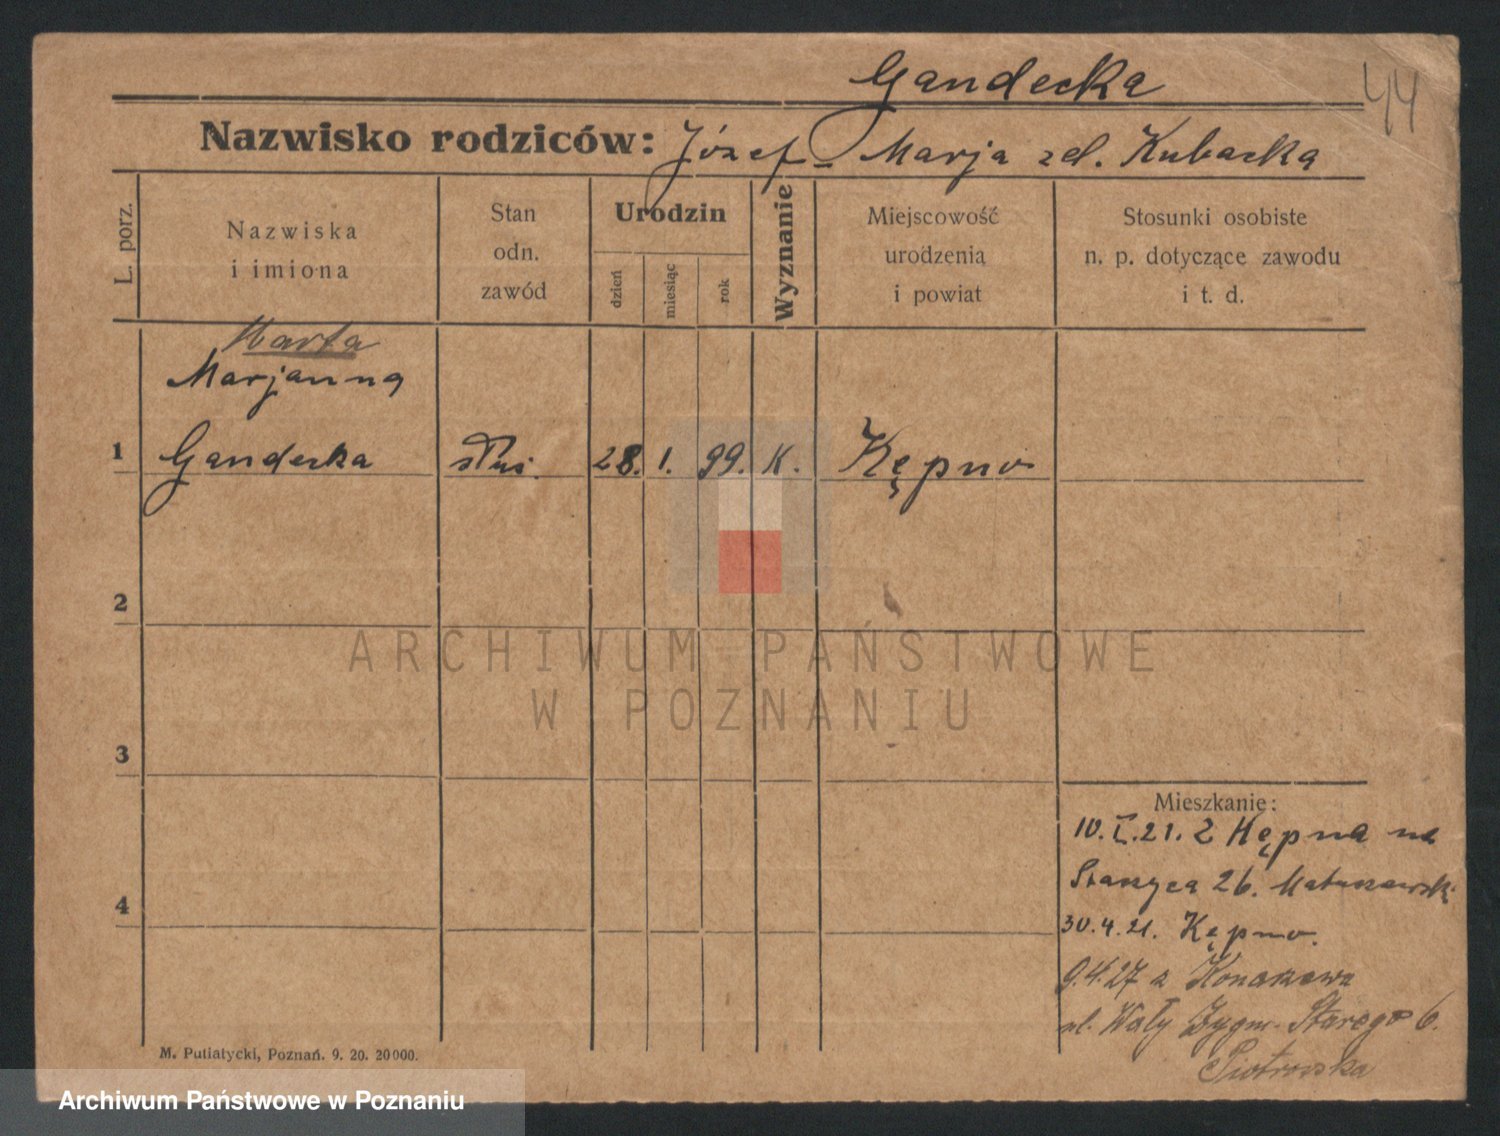 Gandecka
44
Nazwisko rodziców: Józef - Marja zd. Kubacka
L. porz.
Nazwiska
i imiona
Stan
odn.
zawód
Urodzin
dzień
miesiąc
rok
Wyznanie
Miejscowość
urodzenia
i powiat
Stosunki osobiste
n. p. dotyczące zawodu
i t. d.
Marta
Marjanna
1 Gandecka służ. 28. 1. 99. K. Kępno
2
ARCHIWUM PAŃSTWOWE
W POZNANIU
3
Mieszkanie:
10.I.21. Z Kępna na
Staszyca 26. Matuszewski
4
30.4.21. Kępno.
9.4.27 z
ul. Wały Zygm. Starego 6.
Piotrowska
M. Putiatycki, Poznań. 9. 20. 20000.
Archiwum Państwowe w Poznaniu